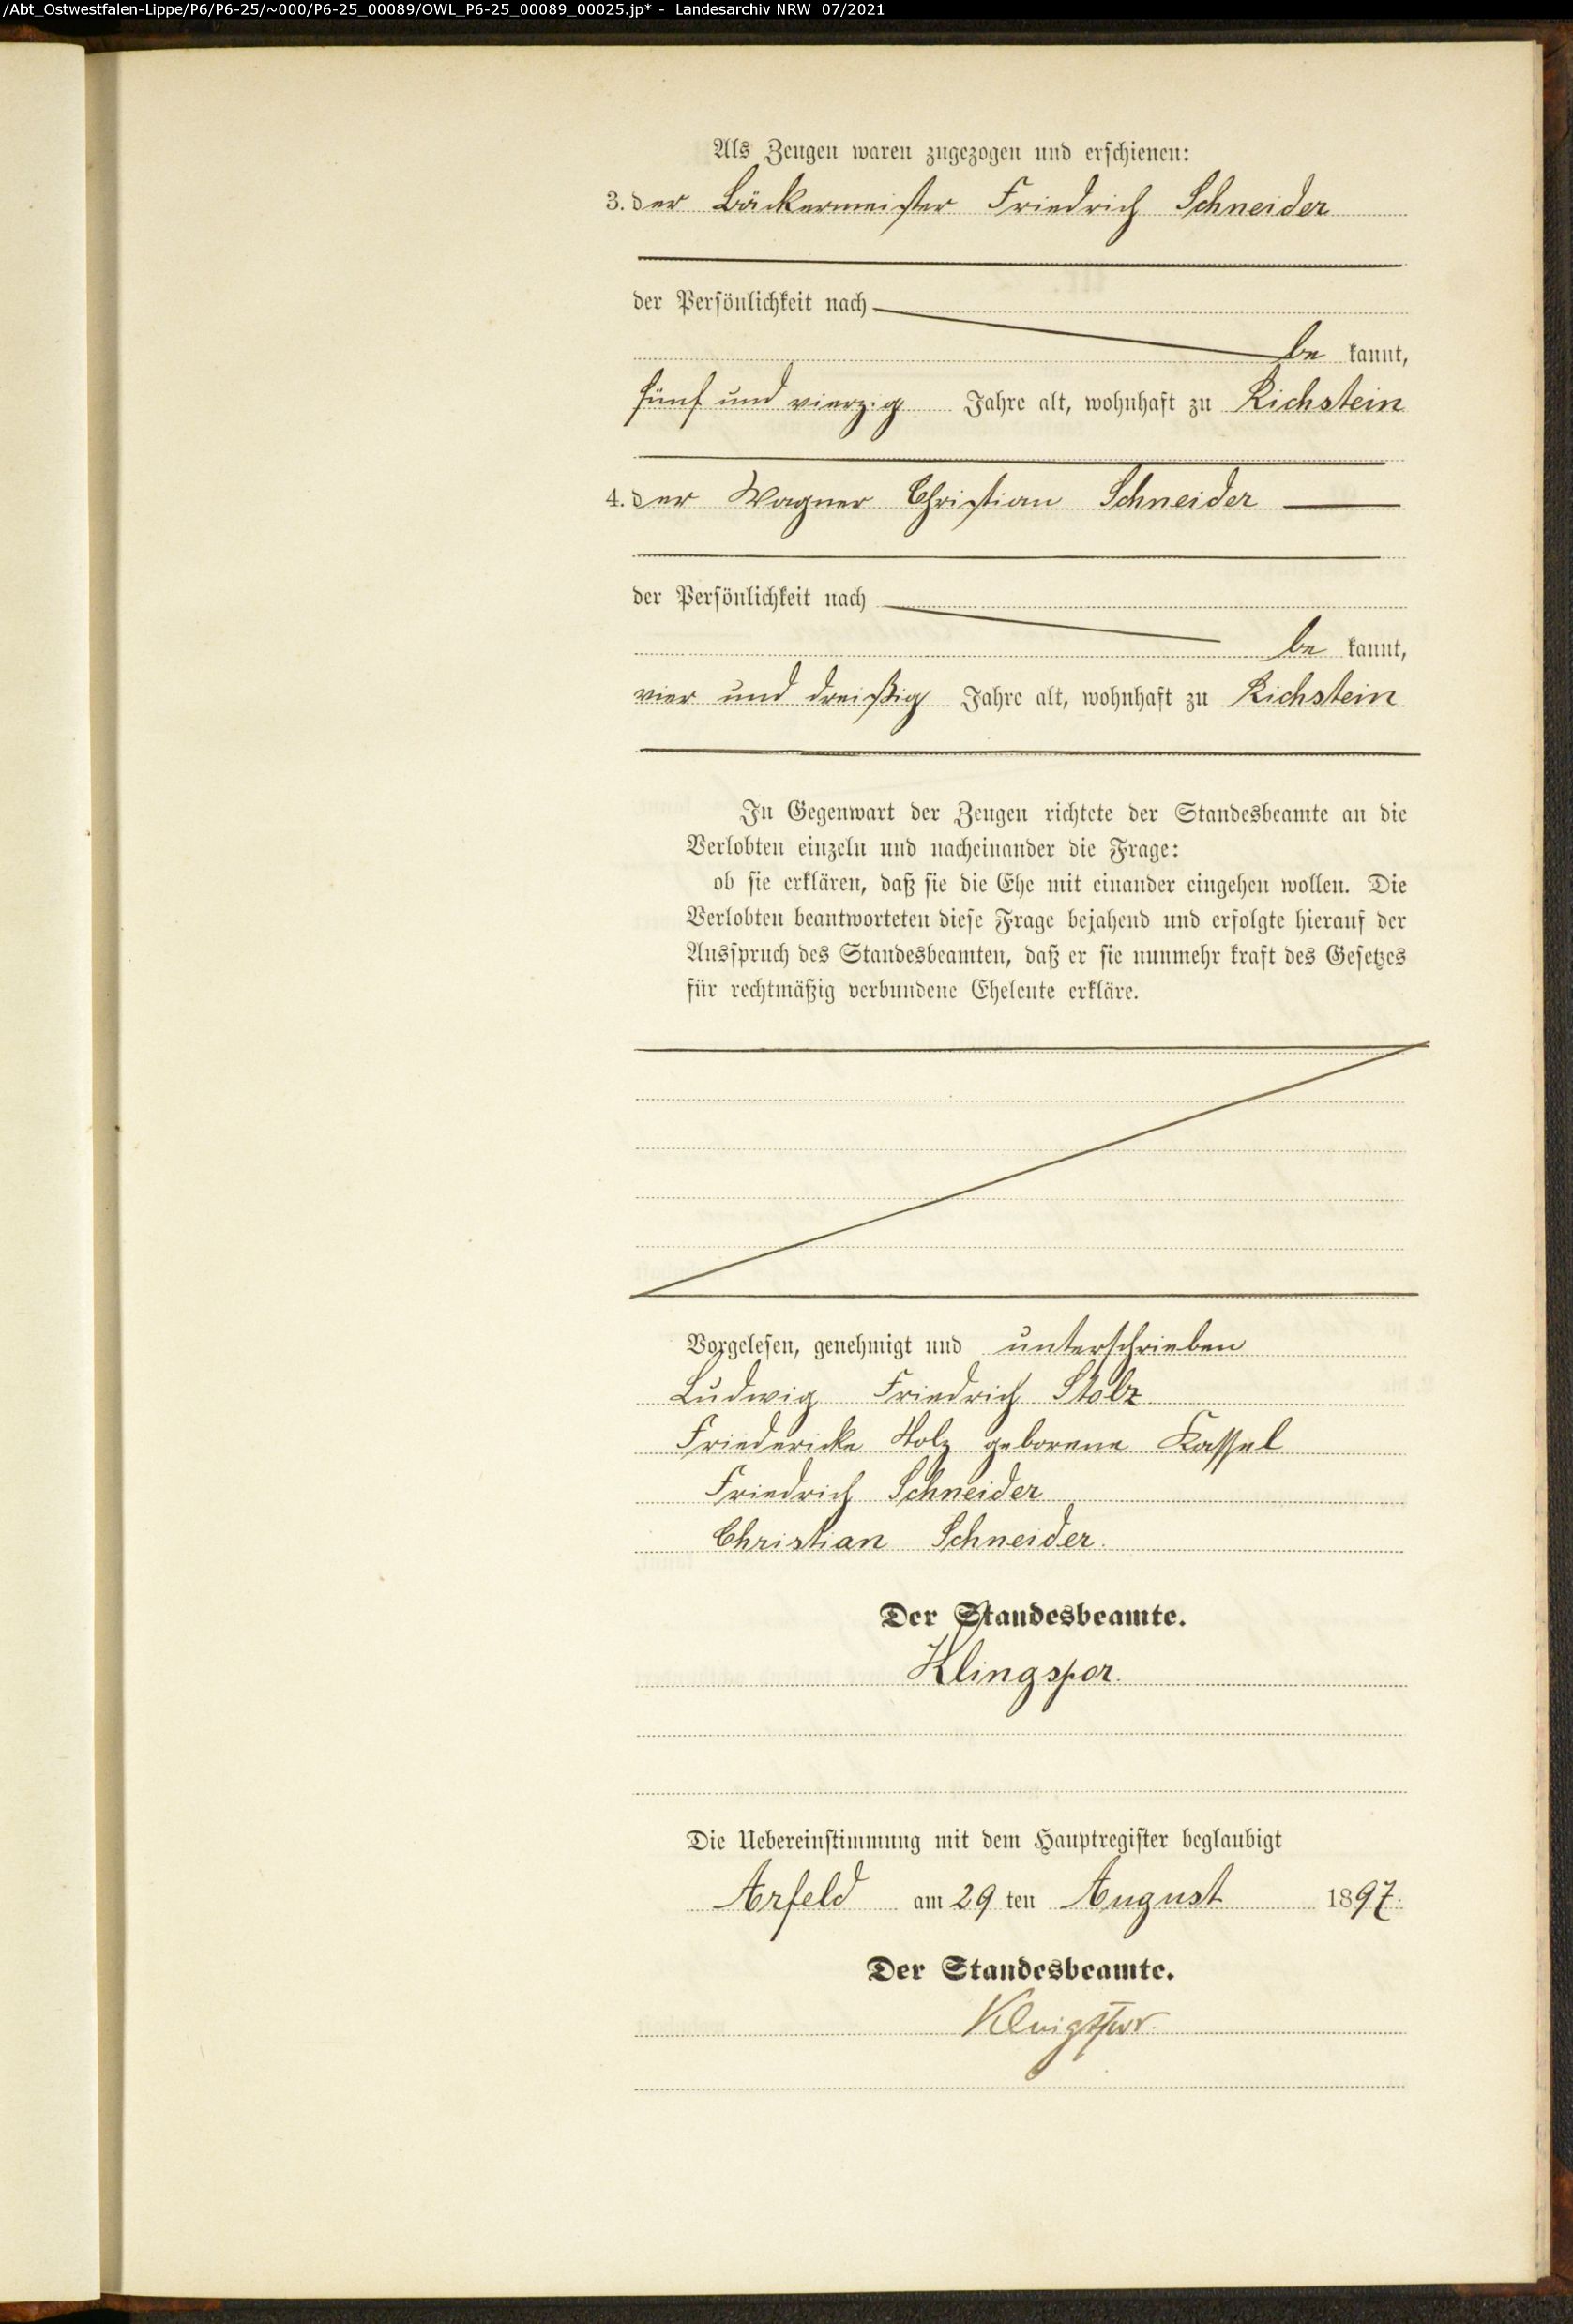 /Abt_Ostwestfalen-Lippe/P6/P6-25/~000/P6-25_00089/OWL_P6-25_00089_00025.jp* - Landesarchiv NRW 07/2021
Als Zeugen waren zugezogen und erschienen:
3. der Bäckermeister Friedrich Schneider
der Persönlichkeit nach
be kannt,
fünf und vierzig Jahre alt, wohnhaft zu Richstein
4. der Wagner Christian Schneider
der Persönlichkeit nach
be kannt,
vier und dreißig Jahre alt, wohnhaft zu Richstein
In Gegenwart der Zeugen richtete der Standesbeamte an die
Verlobten einzeln und nacheinander die Frage:
ob sie erklären, daß sie die Ehe mit einander eingehen wollen. Die
Verlobten beantworteten diese Frage bejahend und erfolgte hierauf der
Ausspruch des Standesbeamten, daß er sie nunmehr kraft des Gesetzes
für rechtmäßig verbundene Eheleute erkläre.
Vorgelesen, genehmigt und unterschrieben
Ludwig Friedrich Stolz
Friedericke Stolz geborene Kassel
Friedrich Schneider
Christian Schneider.
Der Standesbeamte.
Klingspor.
Die Uebereinstimmung mit dem Hauptregister beglaubigt
Arfeld am 29 ten August 1897.
Der Standesbeamte.
Klingspor.